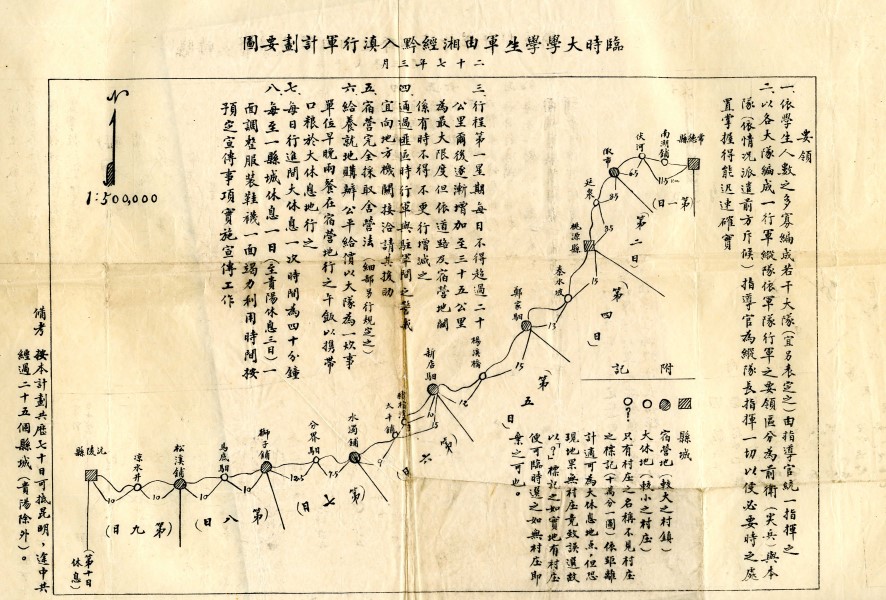 臨時大學學生軍由湘經黔入滇行軍計劃要圖
二十七年三月
要領
一、依學生人數之多寡編成若干大隊(宜另表定之)由指導官統一指揮之
二、以各大隊編成一行軍縱隊依軍隊行軍之要領區分為前衛(尖兵)與本
隊(依情況派遣前方斥候)指導官為縱隊長指揮一切以使必要時之處
置掌握得能迅速確實
三、行程第一星期每日不得超過二十
公里爾後逐漸增加至三十五公里
為最大限度但依道路及宿營地關
係有時不得不更行增減之
四、通過匪區時行軍與駐軍間之警戒
宜向地方機關接洽請其援助
五、宿營完全採取舍營法(細部另行規定之)
六、給養就地購辦公平給價以大隊為一炊事
單位早晚兩餐在宿營地行之午飯以携帶
口粮於大休息地行之
七、每日行進間大休息一次時間為四十分鐘
八、每至一縣城休息一日(至貴陽休息三日)一
面調整服裝鞋襪一面竭力利用時間按
預定宣傳事項實施宣傳工作
1:500,000
常德縣
南湖鋪
伏河
微市
延泉
桃源縣
秦水城
鄭家駟
楊溪橋
新店駟
太平鋪
水濁鋪
分界駟
獅子鋪
馬底駟
松溪鋪
凉水井
沅陵縣
(第一日)
(第二日)
(第四日)
(第五日)
(第六日)
(第七日)
(第八日)
(第九日)
(第十日休息)
115
65
85
85
15
15
15
12
15
9
75
125
10
10
10
10
附記
縣城
宿營地(較大之村鎮)
大休地(較小之村庄)
?
只有村庄之名稱不見村庄
之標記(十萬分一圖)依距離
計適可為大休息地点,但恐
現地果無村庄竟致誤選故
以「?」標記之如實地有村庄
便可臨時選之如無村庄即
棄之可也。
備考 按本計劃共歷七十日可抵昆明,途中共
經過二十五個縣城(貴陽除外)。